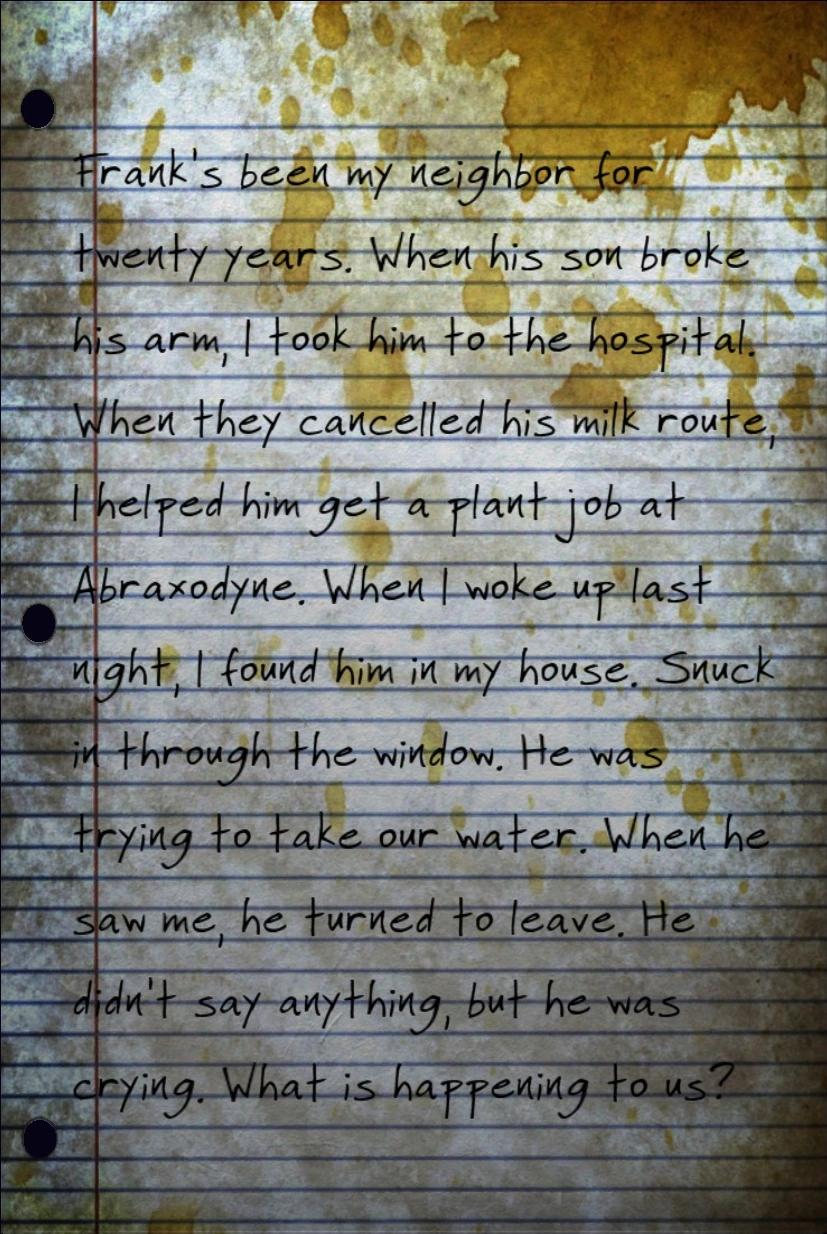 Frank's been my neighbor for
twenty years. When his son broke
his arm, I took him to the hospital.
When they cancelled his milk route,
I helped him get a plant job at
Abraxodyne. When I woke up last
night, I found him in my house. Snuck
in through the window. He was
trying to take our water. When he
saw me, he turned to leave. He
didn't say anything, but he was
crying. What is happening to us?